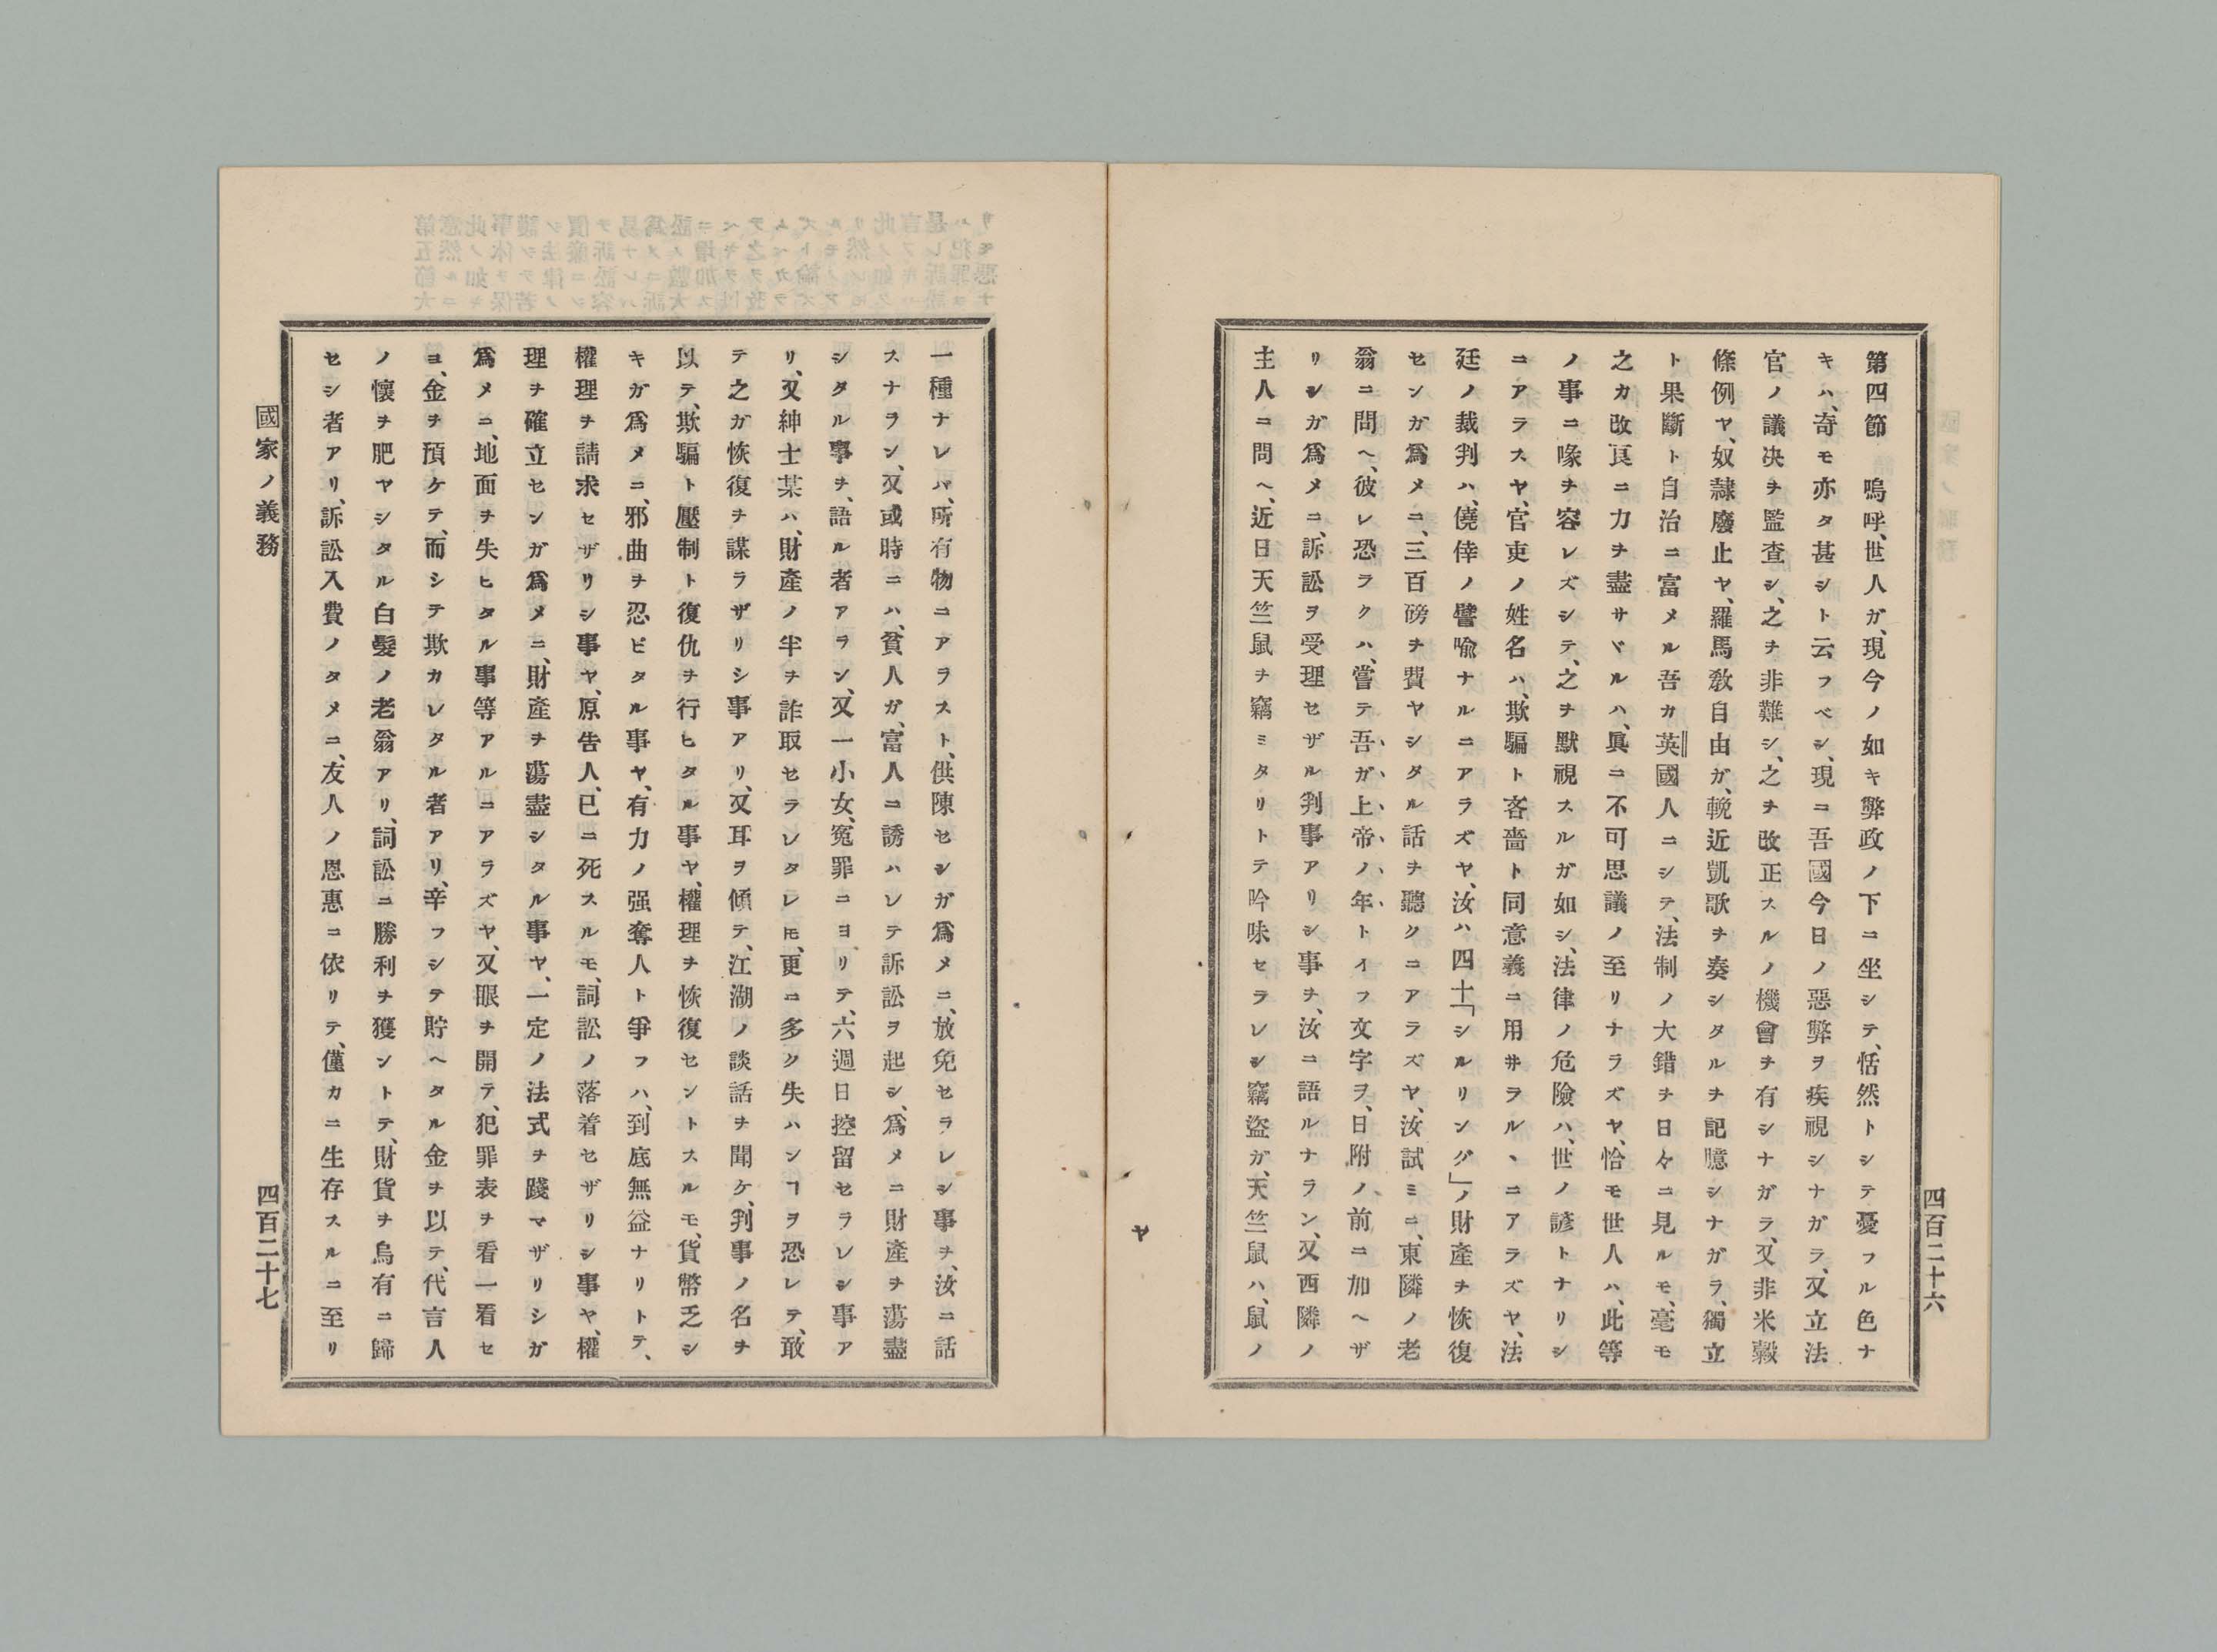 四百二十六
第四節　嗚呼、世人ガ、現今ノ如キ弊政ノ下ニ坐シテ、恬然トシテ憂フル色ナ
キハ、奇モ亦タ甚シト云フベシ、現ニ吾國今日ノ惡弊ヲ疾視シナガラ、又立法
官ノ議决ヲ監查シ、之ヲ非難シ、之ヲ改正スルノ機會ヲ有シナガラ、又非米糓
條例ヤ、奴隷廢止ヤ、羅馬敎自由ガ、輓近凱歌ヲ奏シタルヲ記臆シナガラ、獨立
ト果斷ト自治ニ富メル吾カ英國人ニシテ、法制ノ大錯ヲ日々ニ見ルモ、毫モ
之カ改良ニ力ヲ盡サヾルハ、眞ニ不可思議ノ至リナラズヤ、恰モ世人ハ、此等
ノ事ニ喙ヲ容レズシテ、之ヲ默視スルガ如シ、法律ノ危險ハ、世ノ諺トナリシ
ニアラスヤ、官吏ノ姓名ハ、欺騙ト吝嗇ト同意義ニ用井ラル、ニアラズヤ、法
廷ノ裁判ハ、僥倖ノ譬喩ナルニアラズヤ、汝ハ四十「シルリング」ノ財產ヲ恢復
センガ爲メニ、三百磅ヲ費ヤシタル話ヲ聽クコアラズヤ、汝試ミニ、東隣ノ老
翁ニ問ヘ、彼レ恐ラクハ、嘗テ吾ガ上帝ノ年トイフ文字ヲ、日附ノ前ニ加ヘザ
リシガ爲メニ、訴訟ヲ受理セザル判事アリシ事ヲ、汝ニ語ルナラン、又西隣ノ
主人ニ問ヘ、近日天竺鼠ヲ竊ミタリトテ吟味セラレシ竊盜ガ、天竺鼠ハ、鼠ノ
ヤ
一種ナレバ、所有物ニアラスト、供陳セシガ爲メニ、放免セラレシ事ヲ、汝ニ話
スナラン、又或時ニハ、貧人ガ、富人ニ誘ハレテ訴訟ヲ起シ、爲メニ財產ヲ蕩盡
シタル事ヲ、語ル者アラン、又一小女、寃罪ニヨリテ、六週日控留セラレシ事ア
リ、又紳士某ハ、財產ノ半ヲ詐取セラレタレ𪜈、更ニ多ク失ハンヿヲ恐レテ、敢
テ之ガ恢復ヲ謀ラザリシ事アリ、又耳ヲ傾テ、江湖ノ談話ヲ聞ケ、判事ノ名ヲ
以テ、欺騙ト壓制ト復仇ヲ行ヒタル事ヤ、權理ヲ恢復セントスルモ、貨幣乏シ
キガ爲メニ、邪曲ヲ忍ビタル事ヤ、有力ノ强奪人ト爭フハ、到底無益ナリトテ、
權理ヲ請求セザリシ事ヤ、原告人、已ニ死スルモ、詞訟ノ落着セザリシ事ヤ、權
理ヲ確立センガ爲メニ、財產ヲ蕩盡シタル事ヤ、一定ノ法式ヲ踐マザリシガ
爲メニ、地面ヲ失ヒタル事等アルニアラズヤ、又眼ヲ開テ、犯罪表ヲ看一看セ
ヨ、金ヲ預ケテ、而シテ欺カレタル者アリ、辛フシテ貯ヘタル金ヲ以テ、代言人
ノ懷ヲ肥ヤシタル白髮ノ老翁アリ、詞訟ニ勝利ヲ獲ントテ、財貨ヲ烏有ニ歸
セシ者アリ、訴訟入費ノタメニ、友人ノ恩惠ニ依リテ、僅カニ生存スルニ至リ
國家ノ義務
四百二十七